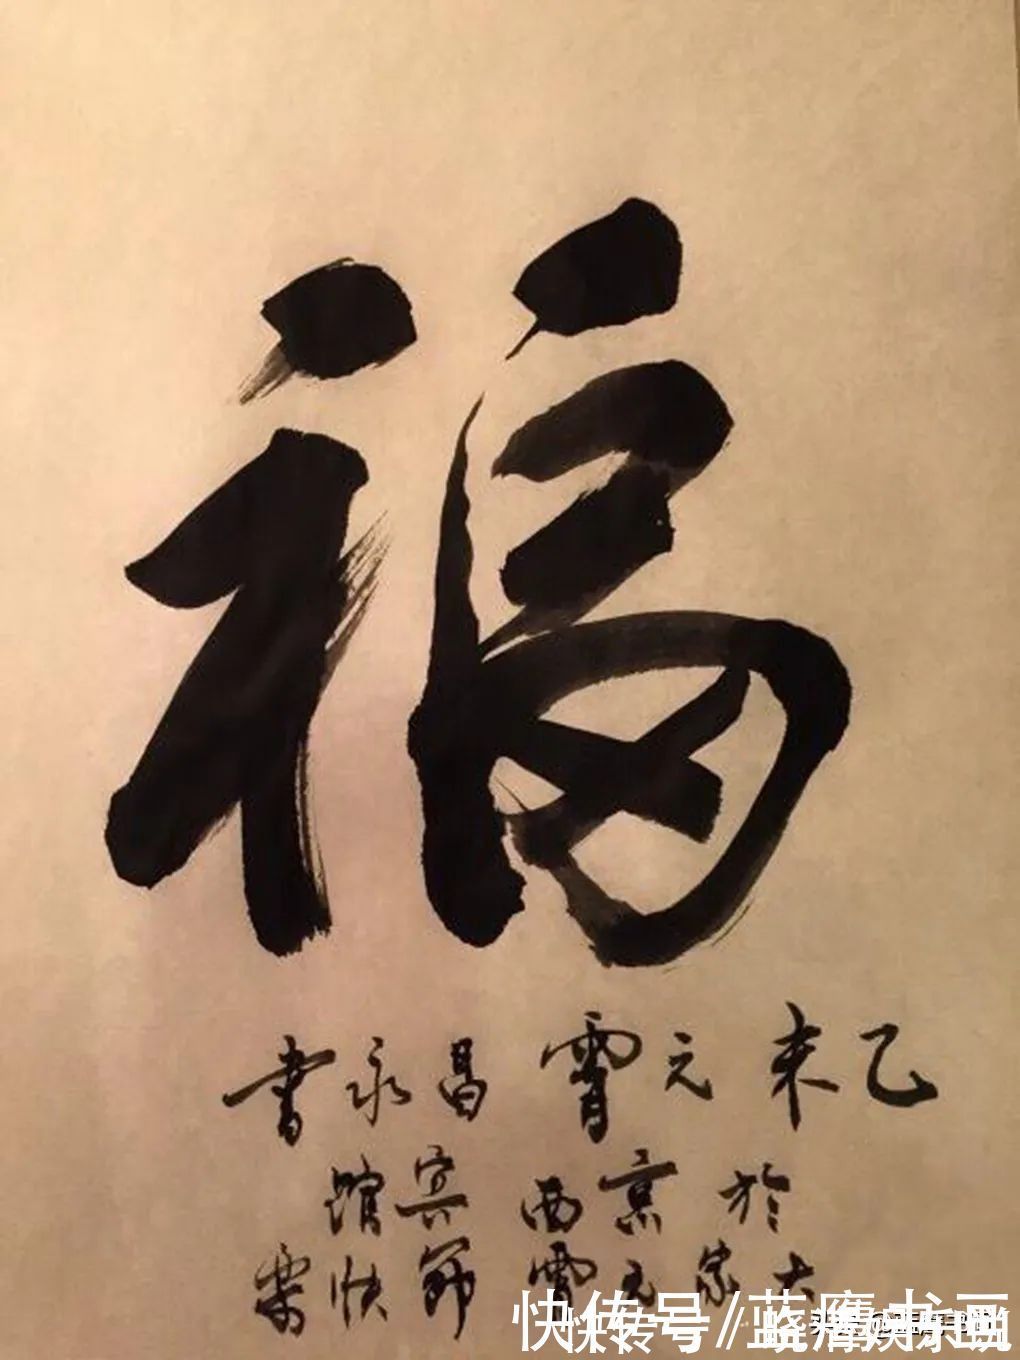 福
乙未元霄昌永書
於京西宾館
大家元霄節快樂
快传号/蓝鹰书画